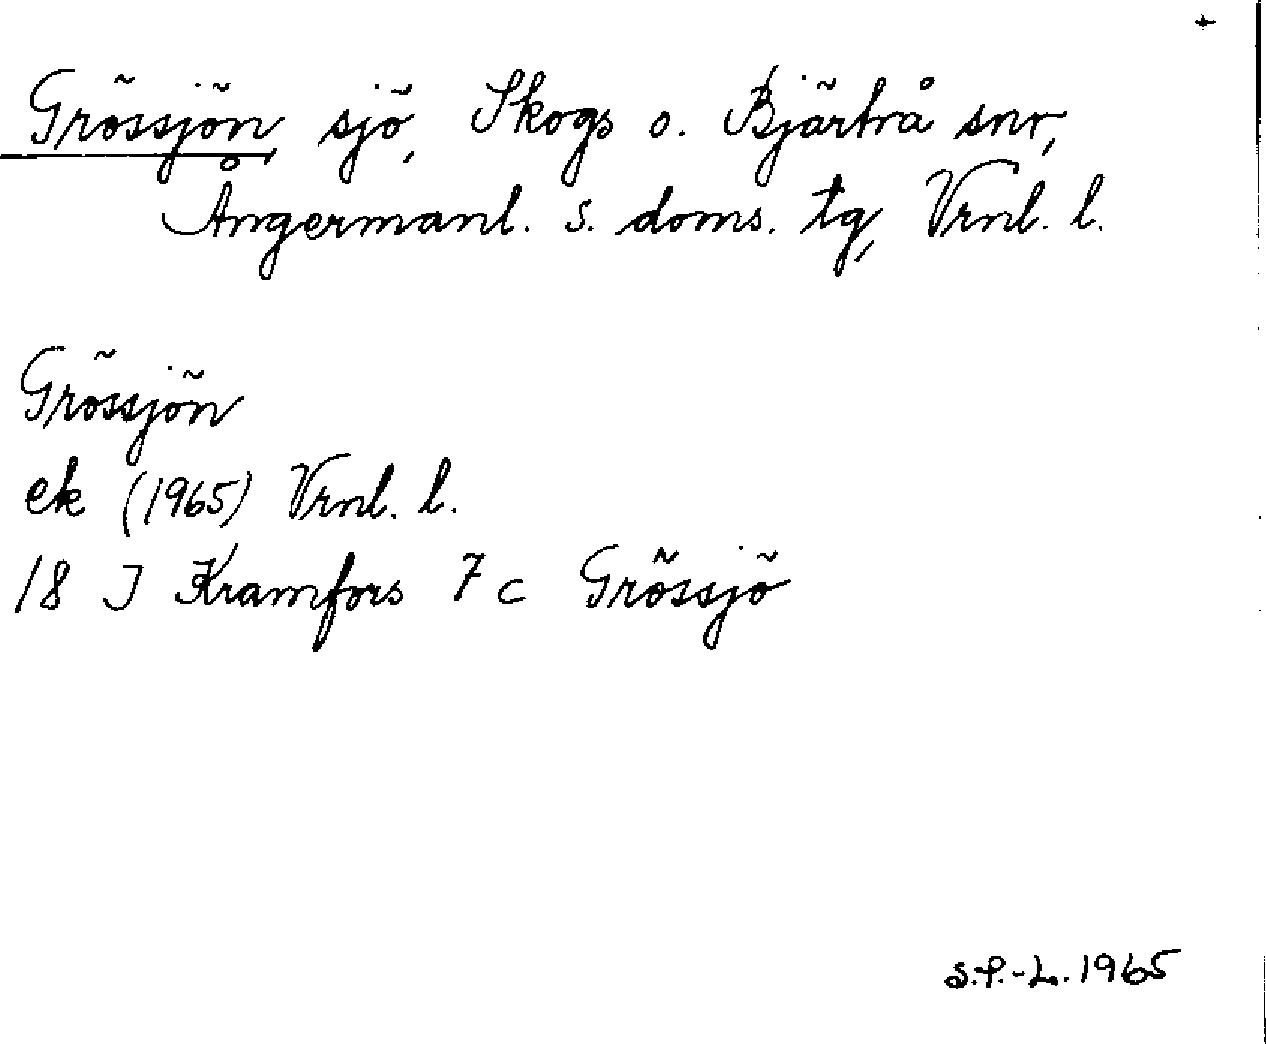 Grössjön, sjö, Skogs o. Bjärtrå snr,
Ångermanl. s. doms. tg, Vrnl. l.
Grössjön
ek (1965) Vrnl. l.
18 J Kramfors 7 c Grössjö
S.P.-L. 1965